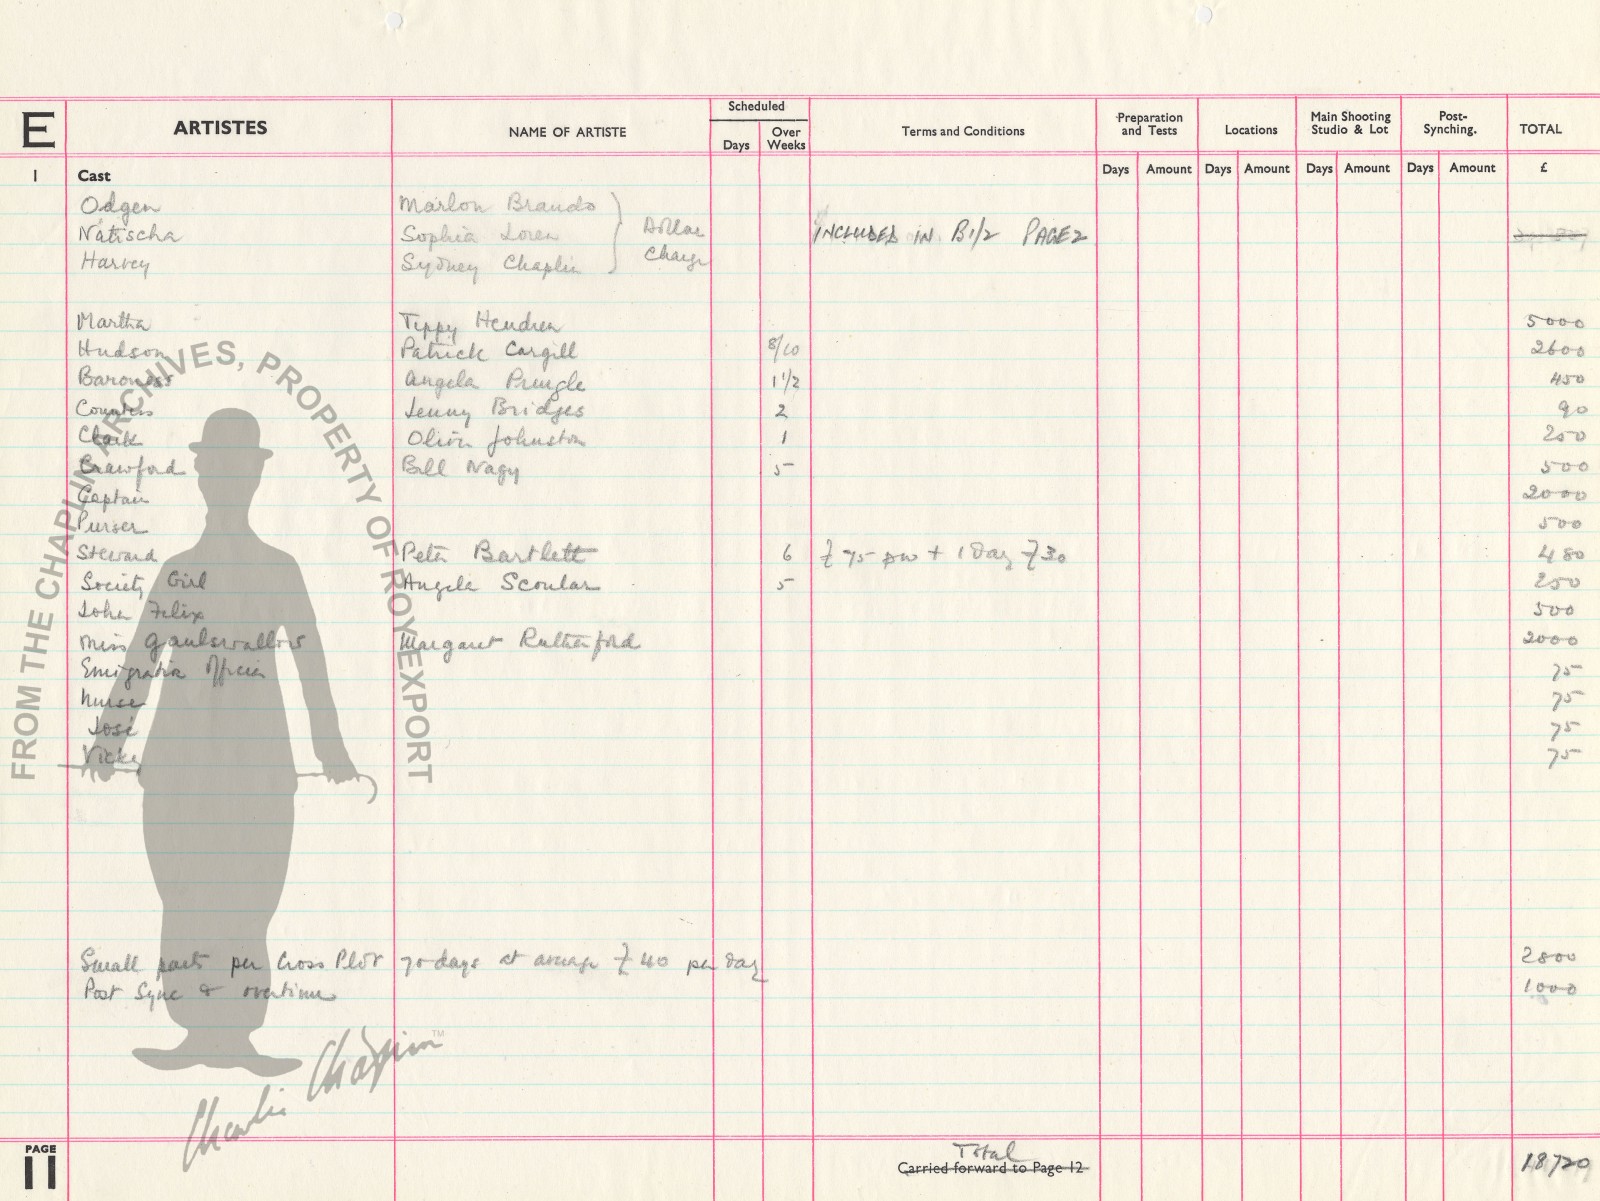 E ARTISTES NAME OF ARTISTE Scheduled Days Over Weeks Terms and Conditions Preparation and Tests Locations Main Shooting Studio & Lot Post-Synching. TOTAL
1 Cast Days Amount Days Amount Days Amount Days Amount £
Odgen Marlon Brando
Natischa Sophia Loren Dollar Charge INCLUDED IN B1/2 PAGE 2
Harvey Sydney Chaplin
Martha Tippy Hendren 5000
Hudson Patrick Cargill 8/10 2600
Baroness Angela Pringle 1 1/2 450
Countess Jenny Bridges 2 90
Clark Oliver Johnston 1 250
Crawford Bill Nagy 5 500
Captain 2000
Purser 500
Steward Peter Bartlett 6 £75 pw + 1 Day £30 480
Society Girl Angela Scoular 5 250
John Felix 500
Miss Gaulswallow Margaret Rutherford 2000
Emigration Officer 75
Nurse 75
José 75
Vicky 75
Small parts per Cross Plot 70 days at average £40 per day 2800
Post Sync & overtime 1000
FROM THE CHAPLIN ARCHIVES, PROPERTY OF ROY EXPORT
Charlie Chaplin™
Total
PAGE 11 Carried forward to Page 12 18720